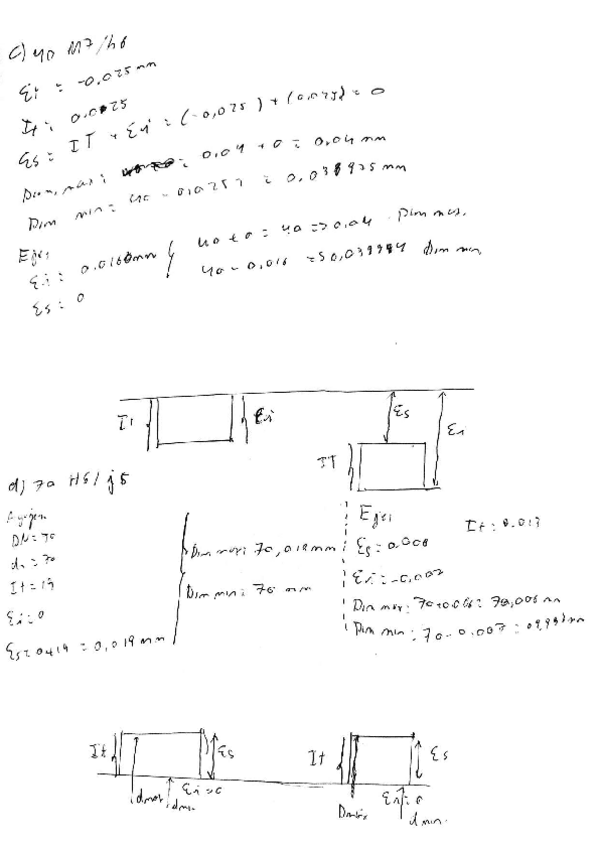 c) 40 M7/h6
Ei = -0.025 mm
It = 0.0025
Es = IT + Ei = (-0,025) + (0,025) = 0
Dim. max: = 0.04 + 0 = 0.04 mm
Dim min = 40 - 0,0257 = 0,038925 mm
Eje:
Ei = 0.0160mm 40 + 0 = 40 => 0.04 Dim max.
Es = 0 40 - 0,016 = Dim min.
It Ei Es Ei
IT
d) 70 H6/j6
DN = 70
dn = 70
It = 19
Ei = 0
Es = 0+19 = 0,019 mm
Dim max: 70,019 mm
Dim min: 70 mm
Eje: It = 0.013
Es = 0.006
Ei = -0,007
Dim max: 70+0.006 = 70,006 mm
Dim min: 70 - 0.007 =
It Es It Es
dmax dmin Ei = 0 Ei = 0
d min.